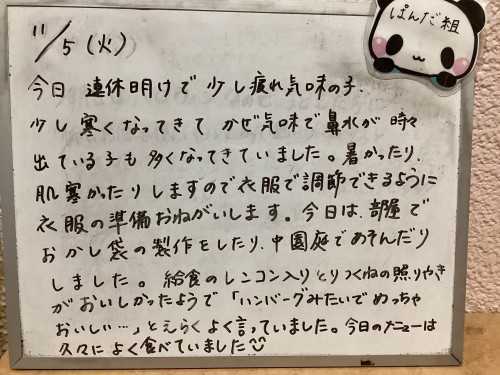 ぱんだ組
11/5(火)
今日 連休明けで 少し疲れ気味の子、
少し 寒くなってきて かぜ気味で 鼻水が 時々
出ている子も 多くなってきていました。暑かったり、
肌寒かったりしますので衣服で調節できるように
衣服の準備おねがいします。今日は、部屋で
おかし袋の製作をしたり、中園庭であそんだり
しました。 給食のレンコン入りとりつくねの照りやき
がおいしかったようで「ハンバーグみたいでめっちゃ
おいしい…」と よく言っていました。今日のメニューは
久々に よく食べていました